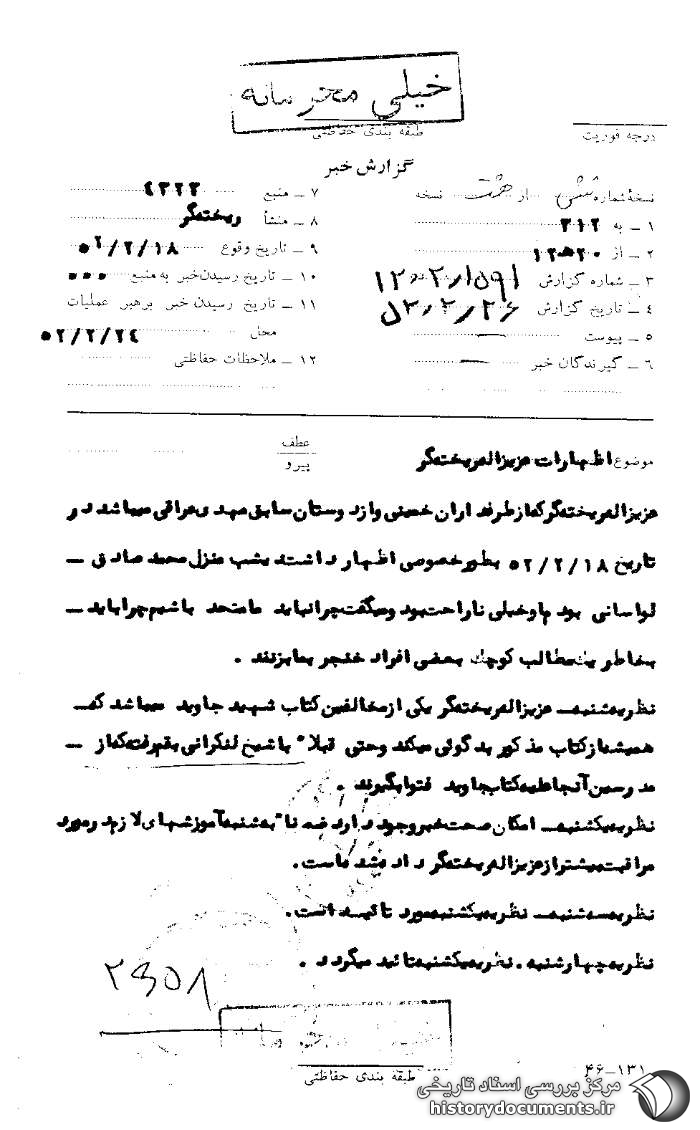 خیلی محرمانه
طبقه بندی حفاظتی
درجه فوریت
گزارش خبر
نسخهٔ شماره شش از هشت نسخه
۱ – به ۳۱۲
۲ – از ۲۰ﻫ۱۲
۳ – شماره گزارش
۴ – تاریخ گزارش ۵۲٫۲٫۲۶
۵ – پیوست —
۶ – گیرندگان خبر —
۷ – منبع ۴۳۲۳
۸ – منشأ ریخته‌گر
۹ – تاریخ وقوع ۵۲/۲/۱۸
۱۰ – تاریخ رسیدن خبر به منبع ۰۰۰
۱۱ – تاریخ رسیدن خبر برهبر عملیات
محل ۵۲/۲/۲۴
۱۲ – ملاحظات حفاظتی
موضوع اظهارات عزیزاله ریخته‌گر
عطف
پیرو
عزیزاله ریخته‌گر که از طرفداران خمینی و از دوستان سابق مهدی عراقی میباشد در
تاریخ ۵۲/۲/۱۸ بطور خصوصی اظهار داشت دیشب منزل محمد صادق –
لواسانی بودم او خیلی ناراحت بود و میگفت چرا نباید ما متحد باشیم چرا باید –
بخاطر یک مطالب کوچک بعضی افراد خنجر بما بزنند .
نظریه شنبه – عزیزاله ریخته‌گر یکی از مخالفین کتاب شهید جاوید میباشد که –
همیشه از کتاب مذکور بدگوئی میکند و حتی قبلا" با شیخ لنکرانی بقم رفته که از –
مدرسین آنجا علیه کتاب جاوید فتوا بگیرند .
نظریه یکشنبه – امکان صحت خبر وجود دارد ضمنا" به شنبه آموزشهای لازم در مورد
مراقبت بیشتر از عزیزاله ریخته‌گر داده شده است .
نظریه سه شنبه – نظریه یکشنبه مورد تائید است .
نظریه چهارشنبه . نظریه یکشنبه تائید میگردد .
طبقه بندی حفاظتی
۱۳۱–۴۶
مرکز بررسی اسناد تاریخی
historydocuments.ir